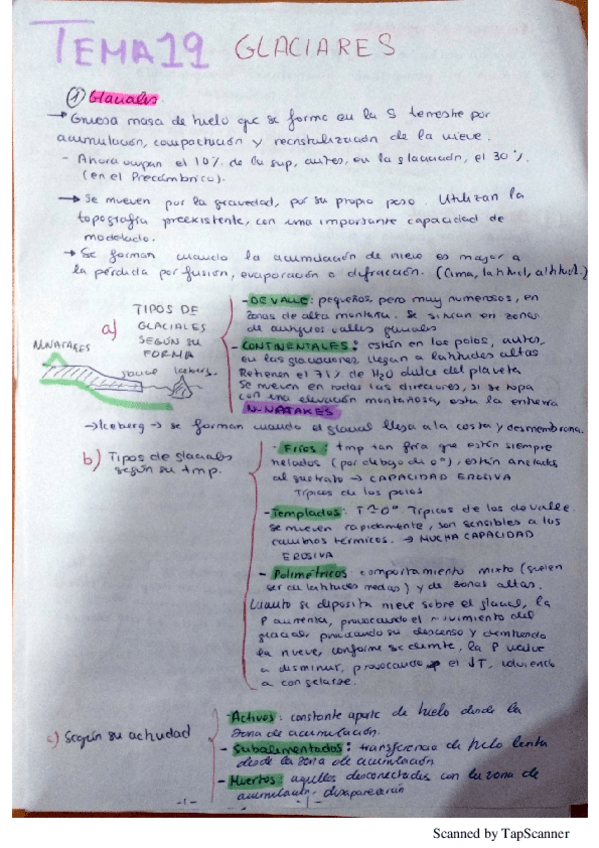 TEMA 19 GLACIARES
① Glaciales
→ Gruesa masa de hielo que se forma en la S terrestre por
acumulación, compactación y recristalización de la nieve.
- Ahora ocupan el 10% de la sup, antes, en la glaciación, el 30%.
(en el Precámbrico).
→ Se mueven por la gravedad, por su propio peso. Utilizan la
topografía preexistente, con una importante capacidad de
modelado.
→ Se forman cuando la acumulación de nieve es mayor a
la pérdida por fusión, evaporación o difracción. (Clima, latitud, altitud.)
a) TIPOS DE
GLACIALES
SEGÚN SU
FORMA
NUNATAKES
glacial Iceberg
- DE VALLE: pequeños, pero muy numerosos, en
zonas de alta montaña. Se sitúan en zonas
de antiguos valles fluviales
- CONTINENTALES: están en los polos, antes,
en las glaciaciones llegan a latitudes altas
Retienen el 75% de H2O dulce del planeta
Se mueven en todas las direcciones, si se topa
con una elevación montañosa, esta la entierra
NUNATAKES
→ Iceberg → se forman cuando el glacial llega a la costa y desmembrona.
b) Tipos de glaciales
según su tmp.
- Fríos: tmp tan fría que están siempre
helados (por debajo de 0°), están anclados
al sustrato → CAPACIDAD EROSIVA
Típicos de los polos
- Templados: T≈0° Típicos de los de valle.
Se mueven rápidamente, son sensibles a los
cambios térmicos. → MUCHA CAPACIDAD
EROSIVA
- Polimétricos: comportamiento mixto (suelen
ser en latitudes medias) y de zonas altas.
Cuanto se deposita nieve sobre el glacial, la
P aumenta, provocando el movimiento del
glacial, su descenso y
la nieve, conforme se la P vuelve
a disminuir, provocando el ↓T, volviendo
a congelarse.
c) Según su actividad
- Activos: constante aporte de hielo desde la
zona de acumulación.
- Subalimentados: transferencia de hielo lenta
desde la zona de acumulación
- Muertos: aquellos desconectados con la zona de
acumulación, desaparecerán
-1-
Scanned by TapScanner